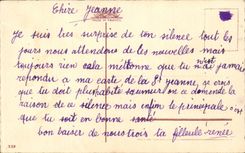 Chère Jeanne
je suis très surprise de ton silence tout les
jours nous attendons de tes nouvelles mais
toujours rien cela m'étonne que tu n'ai jamais
repondu a ma carte de la Ste jeanne, je crois,
que tu doit plus habité saumur on ce demande la
raison de ce silence mais enfin le principale c'est
que tu soit en bonne santé
bon baiser de nous trois ta filleule renée